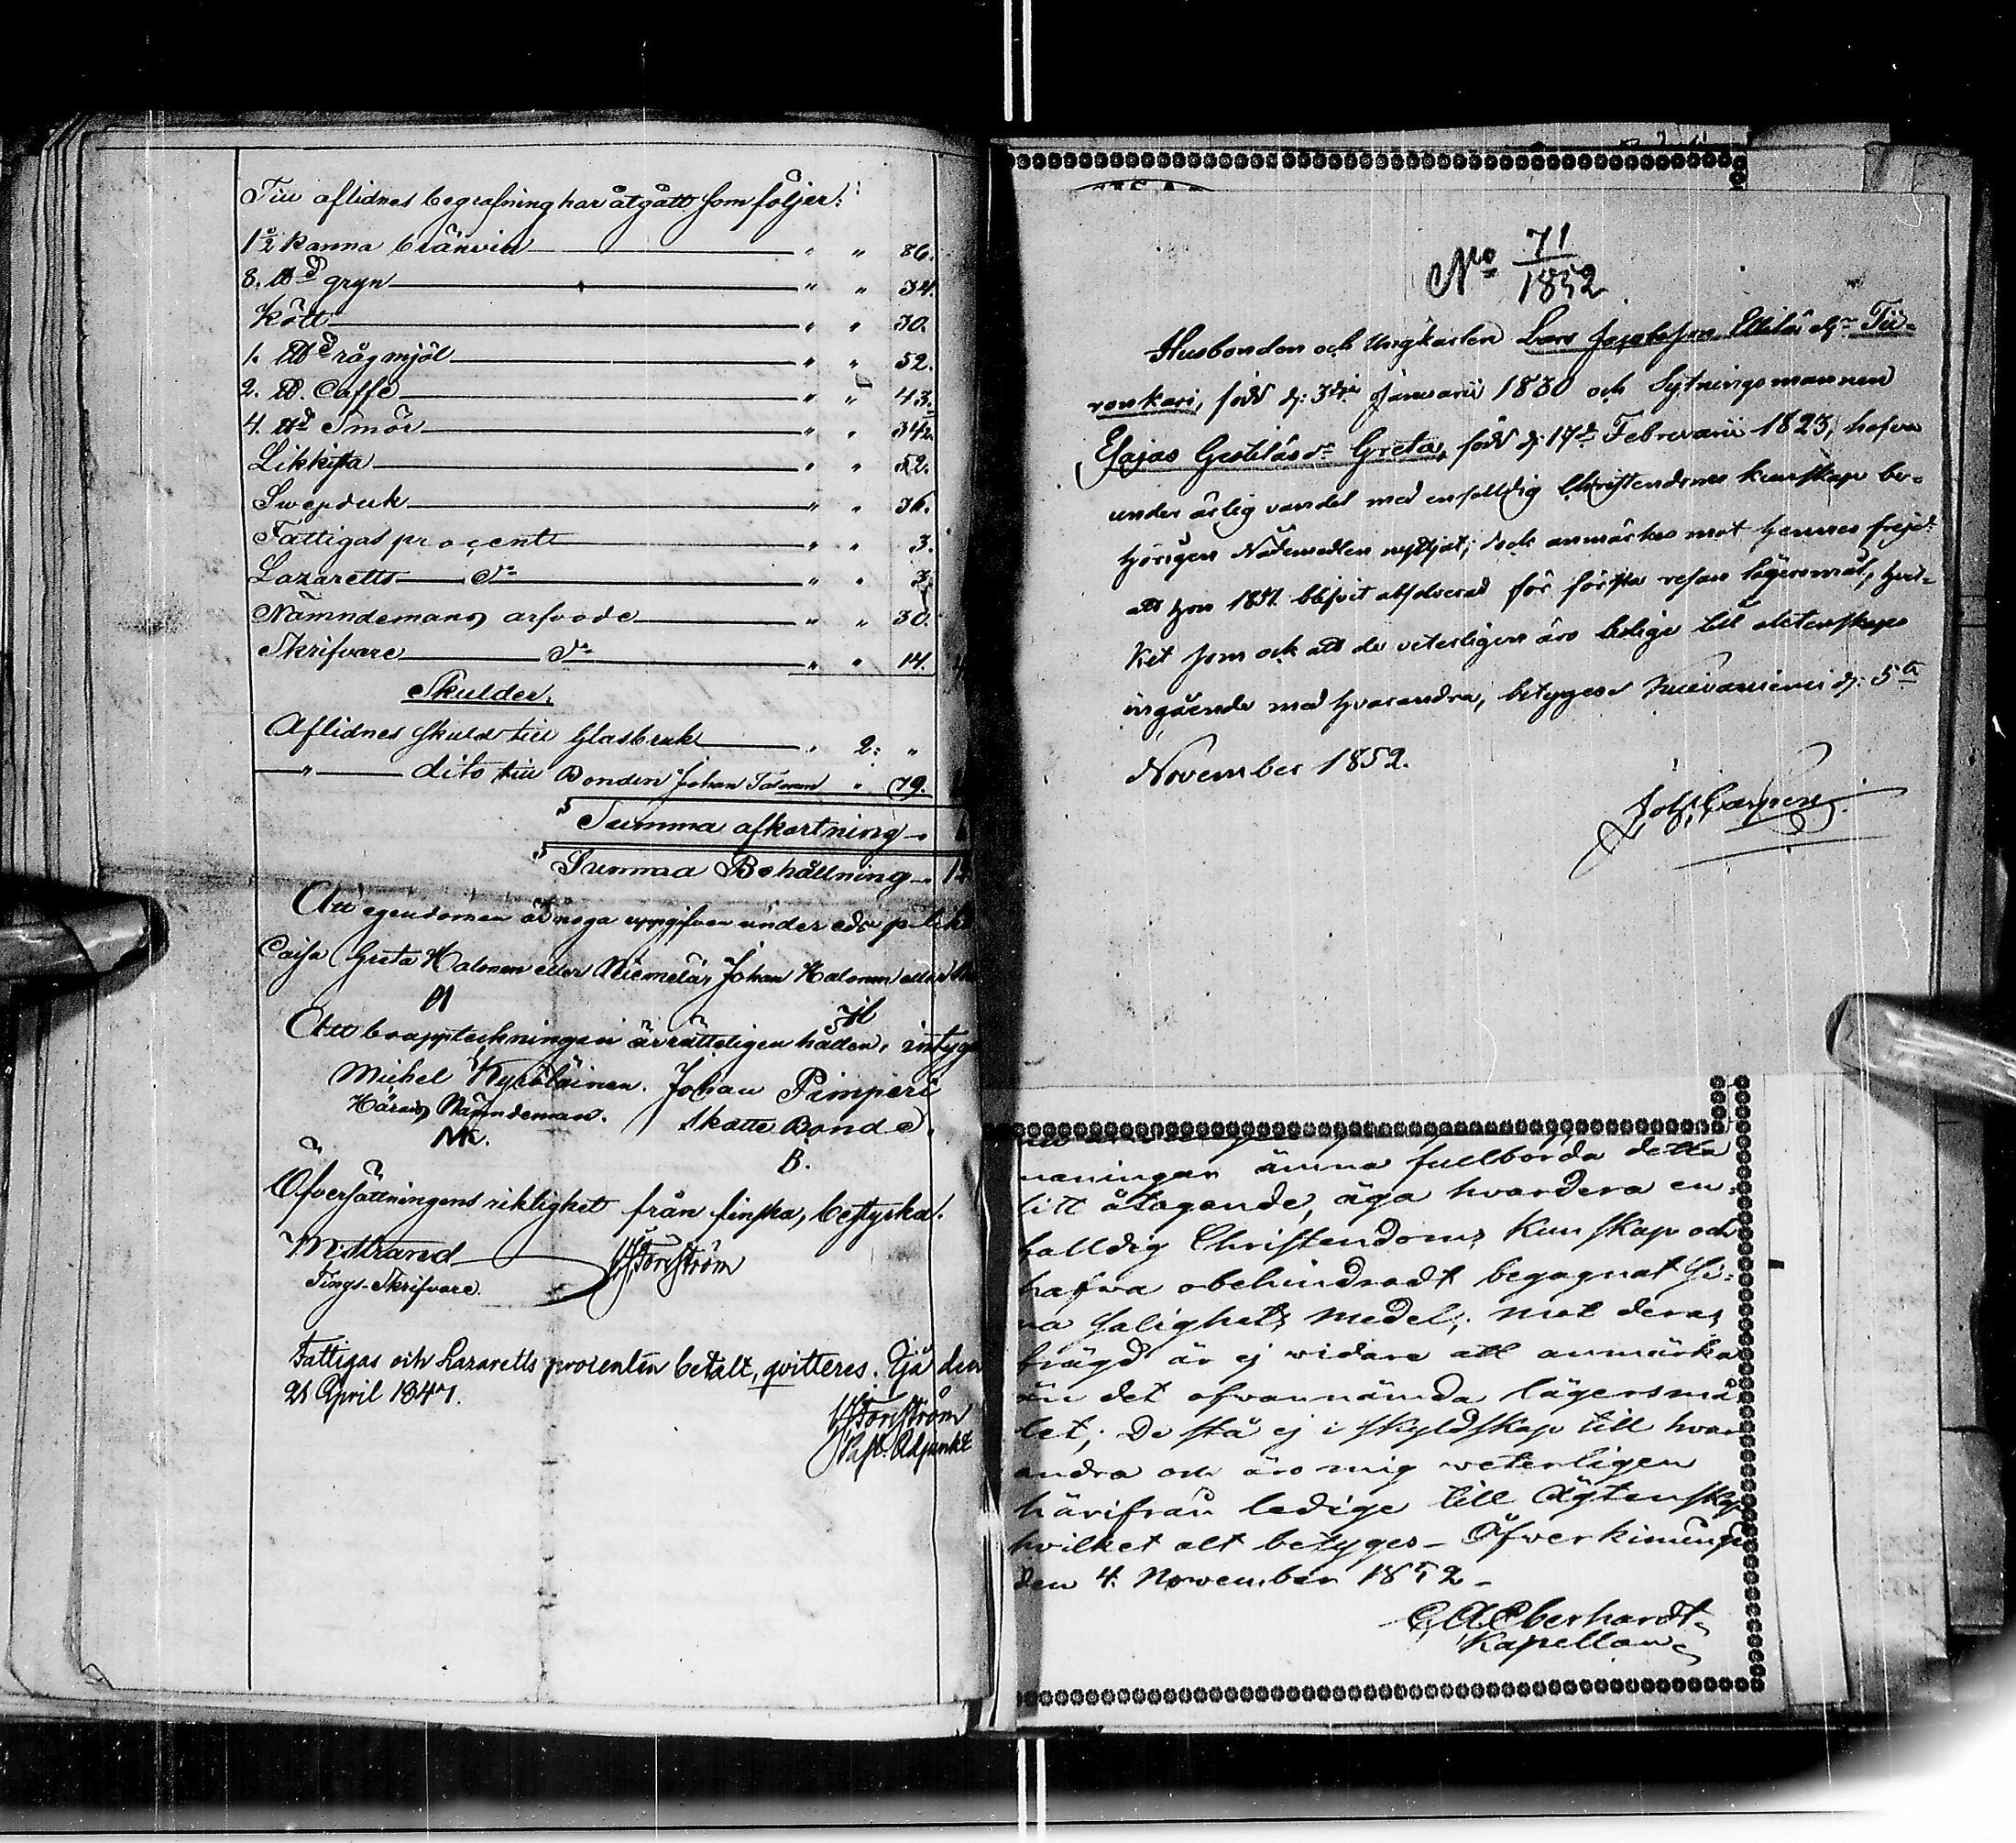 Till aflidnes begrafning har åtgått som följer:
1 1/2 kanna bränvin " " 86.
8. ℔d gryn " " 34.
Kött " " 30.
1. L℔d rågmjöl " " 52.
2. ℔. Caffe " " 43.
4. ℔d Smör " " 34 2/
Likkista " " 52.
Swepduk " " 36.
Fattigas procent " " 3.
Lazaretts do " " 3.
Nämndemans arfvode " " 30.
Skrifvare do " " 14.
Skulder.
Aflidnes skuld till Glasbruk " 2: "
" dito till Bonden Johan " 79.
Summa afkortning
Summa Behållning
Att egendomen är noga uppgifven under eds
Caisa Greta Halonen eller Niemelä, Johan Halonen eller
Att bouppteckningen är rätteligen hållen, intyga
Michel Kyröläinen. Johan Pimperi
Härads Nämndeman. Skatte Bonde.
MK. B.
Öfversättningens riktighet från finska, bestyrka.
M. Strand Forsström
Tings-Skrifvare
Fattigas och Lazaretts procenten betalt, qvitteres. Ijå den
28 April 1847.
Forsström
Past. Adjunkt
No 71/1852
Husbonden och Ungkarlen Lars Josefsson
ronkari, född d: 3dje Januarii 1830 och Sytningsmannen
Esajas dr Greta, född d: 17de Februarii 1823, hafva
under ärlig vandel med enfalldig Christendoms kunskap be-
hörigen Nådemedlen nyttjat; dock anmärkes mot hennes frejd
att hon 1851 blifvit absolverad för första resan lägersmål, hvil-
ket som och att de veterligen äro ledige till äktenskaps
ingående med hvarandra, betyges d: 5te
November 1852.
naningar ämna fullborda detta
sitt åtagande, äga hvardera en-
falldig Christendoms Kunskap och
hafwa obehindradt begagnat si-
na salighets medel; mot deras
frägd är ej widare att anmärka
än det ofvannämda lägersmå
let; De stå ej i skyldskap till hvar
andra och äro mig veterligen
härifrån ledige till Ägtenskap
hvilket alt betyges – Öfwerkiminge
den 4. November 1852 –
C. A. Eberhardt
Kapellan